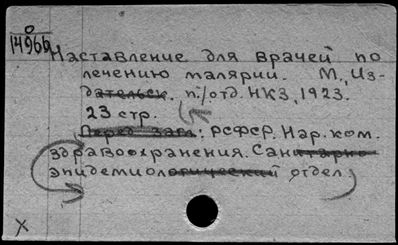 14966
Наставление для врачей по
лечению малярии. М., Из-
дательск. п/отд. НКЗ, 1923.
23 стр.
Перед загл: РСФСР. Нар. ком.
здравоохранения. Санитарно
эпидемиологический отдел.
X